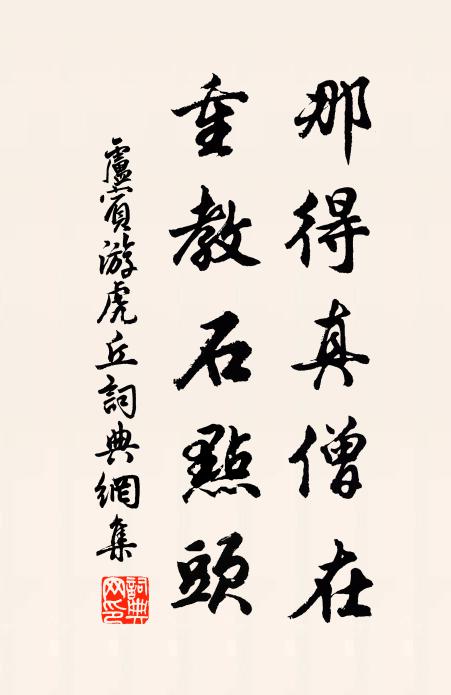 那得真僧在
重教石點頭
盧賓游虎丘詞典網集
詞典網印